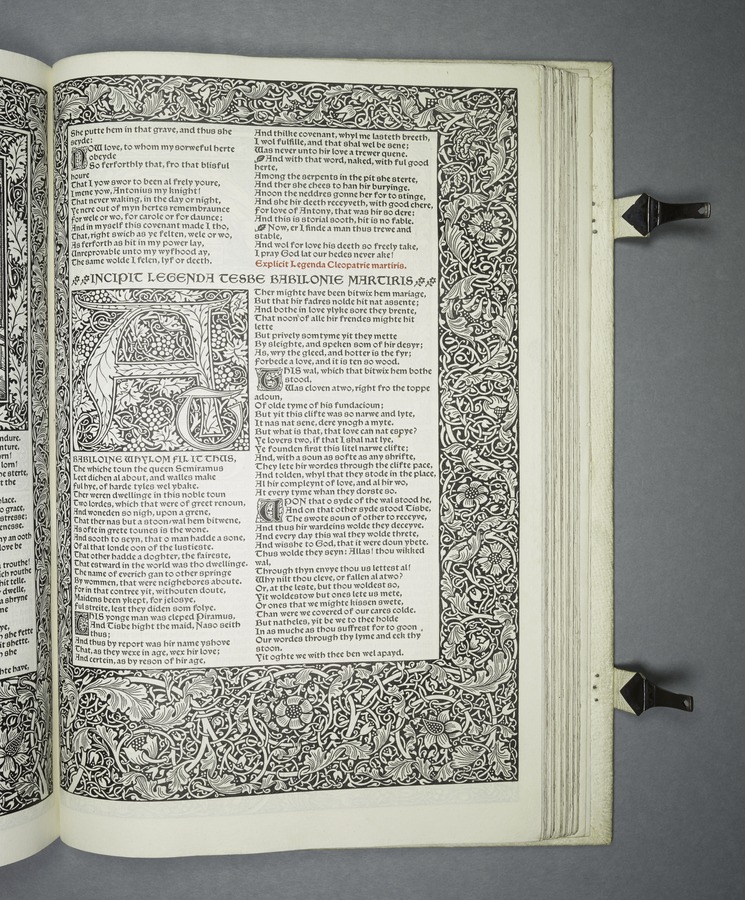 ndure.
nture,
rn!
lorn!
he sterte.
t the
place.
o grace,
stresse;
enesse.
ny an ooth
love be
trouthe!
ich routhe
hit telle.
y dwelle,
a shryne
me
ye,
n she fette
it shette.
h she
hte have,
She putte hem in that grave, and thus she
seyde:
NOW love, to whom my sorweful herte
obeyde
So ferforthly that, fro that blisful
houre
That I yow swor to been al frely youre,
I mene yow, Antonius my knight!
That never waking, in the day or night,
Ye nere out of myn hertes remembraunce
For wele or wo, for carole or for daunce;
And in myself this covenant made I tho,
That, right swich as ye felten, wele or wo,
As ferforth as hit in my power lay,
Unreprovable unto my wyfhood ay,
The same wolde I felen, lyf or deeth.
And thilke covenant, whyl me lasteth breeth,
I wol fulfille, and that shal wel be sene;
Was never unto hir love a trewer quene.
And with that word, naked, with ful good
herte,
Among the serpents in the pit she sterte,
And ther she chees to han hir buryinge.
Anoon the neddres gonne her for to stinge,
And she hir deeth receyveth, with good chere,
For love of Antony, that was hir so dere:
And this is storial sooth, hit is no fable.
Now, er I finde a man thus trewe and
stable,
And wol for love his deeth so freely take,
I pray God lat our hedes never ake!
Explicit Legenda Cleopatrie martiris.
INCIPIT LEGENDA TESBE BABILONIE MARTIRIS
AT
BABILOINE WHYLOM FIL IT THUS,
The whiche toun the queen Semiramus
Leet dichen al about, and walles make
Ful hye, of harde tyles wel ybake.
Ther weren dwellinge in this noble toun
Two lordes, which that were of greet renoun,
And woneden so nigh, upon a grene,
That ther nas but a stoon-wal hem bitwene,
As ofte in grete tounes is the wone.
And sooth to seyn, that o man hadde a sone,
Of al that londe oon of the lustieste.
That other hadde a doghter, the faireste,
That estward in the world was tho dwellinge.
The name of everich gan to other springe
By wommen, that were neighebores aboute.
For in that contree yit, withouten doute,
Maidens been ykept, for jelosye,
Ful streite, lest they diden som folye.
THIS yonge man was cleped Piramus,
And Tisbe hight the maid, Naso seith
thus;
And thus by report was hir name yshove
That, as they wexe in age, wex hir love;
And certein, as by reson of hir age,
Ther mighte have been bitwix hem mariage,
But that hir fadres nolde hit nat assente;
And bothe in love ylyke sore they brente,
That noon of alle hir frendes mighte hit
lette
But prively somtyme yit they mette
By sleighte, and speken som of hir desyr;
As, wry the gleed, and hotter is the fyr;
Forbede a love, and it is ten so wood.
THIS wal, which that bitwix hem bothe
stood,
Was cloven atwo, right fro the toppe
adoun,
Of olde tyme of his fundacioun;
But yit this clifte was so narwe and lyte,
It nas nat sene, dere ynogh a myte.
But what is that, that love can nat espye?
Ye lovers two, if that I shal nat lye,
Ye founden first this litel narwe clifte;
And, with a soun as softe as any shrifte,
They lete hir wordes through the clifte pace,
And tolden, whyl that they stode in the place,
Al hir compleynt of love, and al hir wo,
At every tyme whan they dorste so.
UPON that o syde of the wal stood he,
And on that other syde stood Tisbe,
The swote soun of other to receyve,
And thus hir wardeins wolde they deceyve.
And every day this wal they wolde threte,
And wisshe to God, that it were doun ybete.
Thus wolde they seyn: Allas! thou wikked
wal,
Through thyn envye thou us lettest al!
Why nilt thou cleve, or fallen al atwo?
Or, at the leste, but thou woldest so,
Yit woldestow but ones lete us mete,
Or ones that we mighte kissen swete,
Than were we covered of our cares colde.
But natheles, yit be we to thee holde
In as muche as thou suffrest for to goon
Our wordes through thy lyme and eek thy
stoon.
Yit oghte we with thee ben wel apayd.